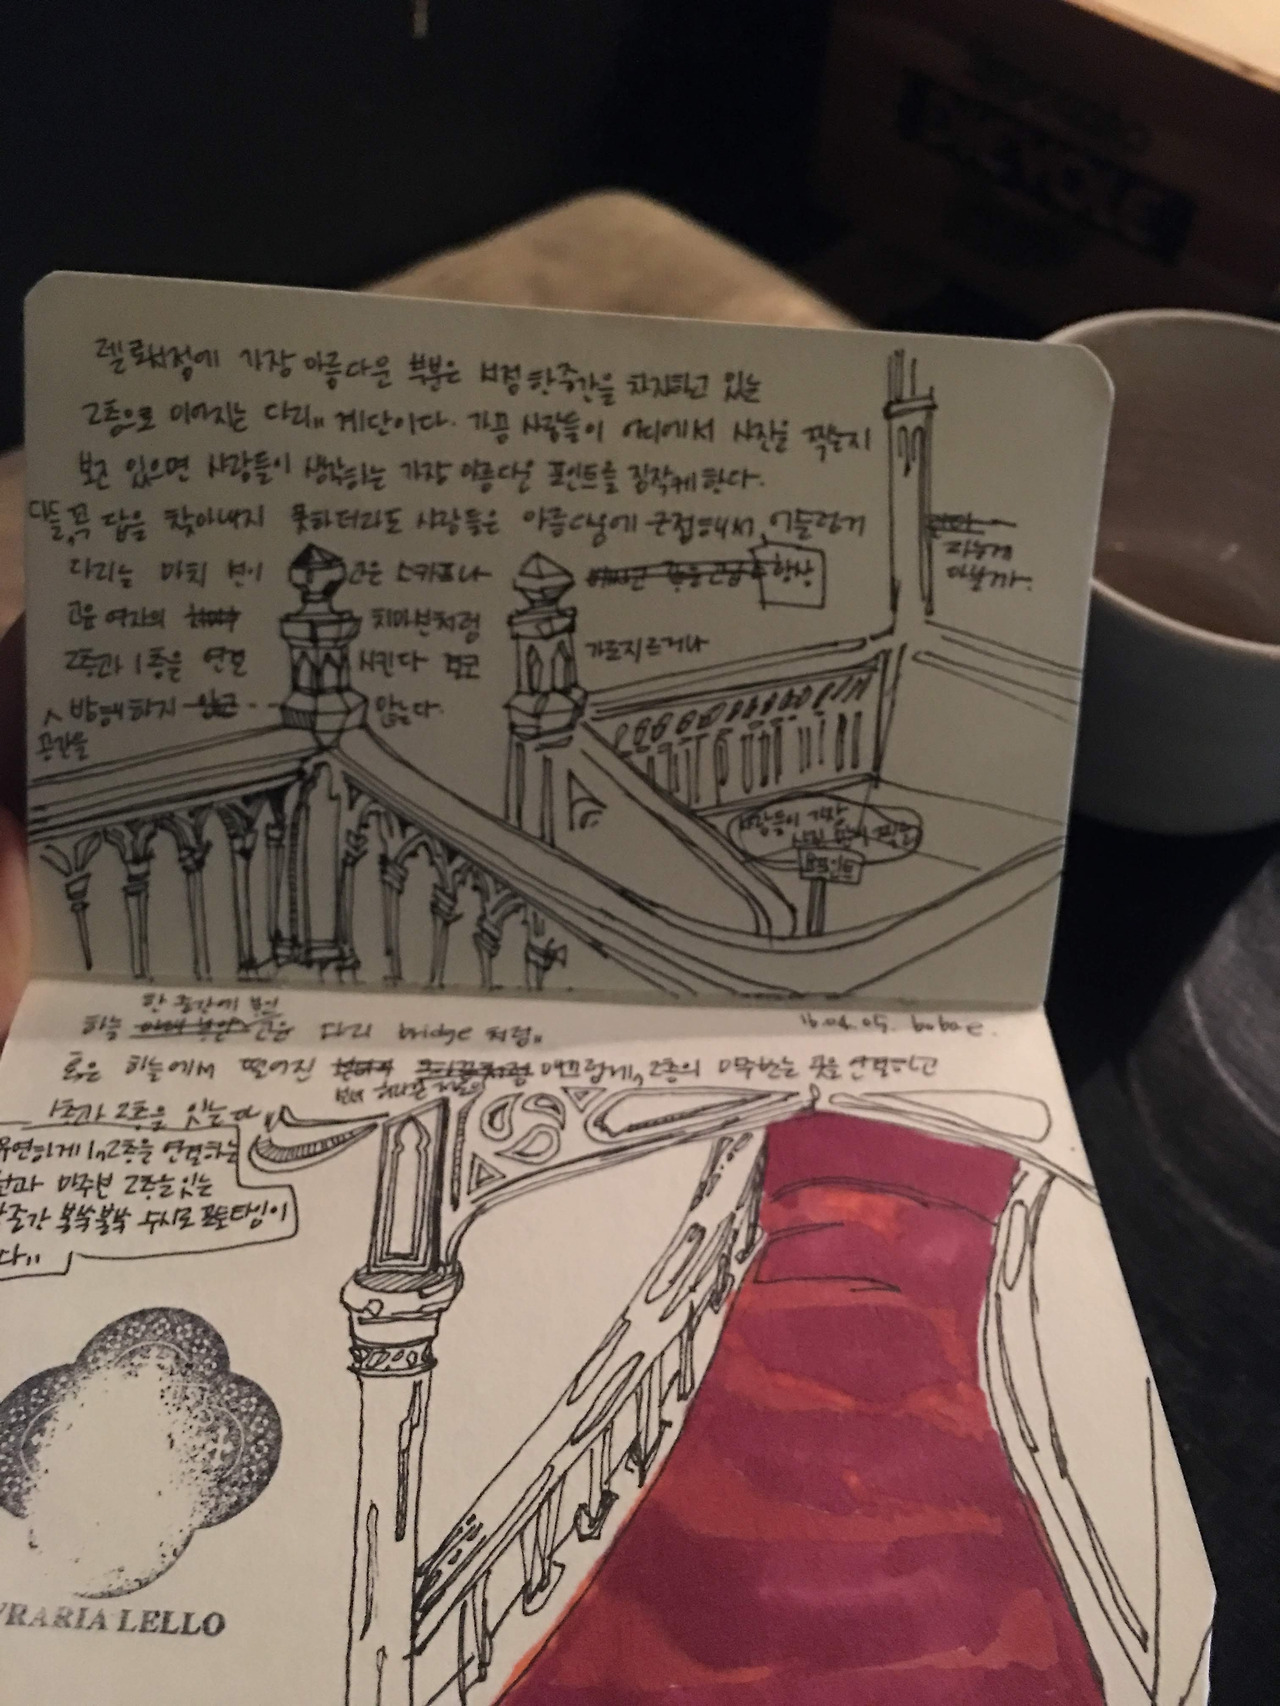 렐로서점에 가장 아름다운 부분은 서점 한중간을 차지하고 있는
2층으로 이어지는 다리,, 계단이다. 가끔 사람들이 어디에서 사진을 찍는지
보고 있으면 사람들이 생각하는 가장 아름다운 포인트를 짐작케 한다.
다들 꼭 답을 찾아내지 못하더라도 사람들은 아름다움에 근접해서, 어둘렁거
다리는 마치 고운 스카프나 항상
고운 여자의 치마폭처럼 가로지르거나
2층과 1층을 연결 시킨다 결코
방해하지 않는다.
공간을
사람들이 가장
사진 많이 찍는
포인트
한 중간에 놓인
하늘 다리 bridge 처럼,,
16.04.05. bobae.
혹은 하늘에서 떨어진 매끄럽게, 2층의 마주보는 곳을 연결하고
1층과 2층을 잇는다,,
유연하게 1,,2층을 연결하는
마주본 2층을 잇는
중간 불쑥불쑥 수시로 포토타임이
다,,
VRARIA LELLO